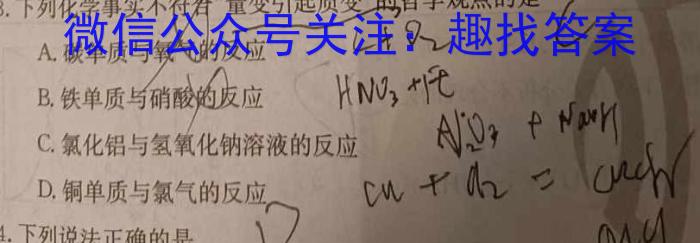 3.下列化学事实不符合"量变引起质变"的哲学观点的是
微信公众号关注：趣找答案
A.碳单质与氧气的反应
B.铁单质与硝酸的反应 HNO₃ + Fe
C.氯化铝与氢氧化钠溶液的反应
D.铜单质与氯气的反应
4.下列说法正确的是